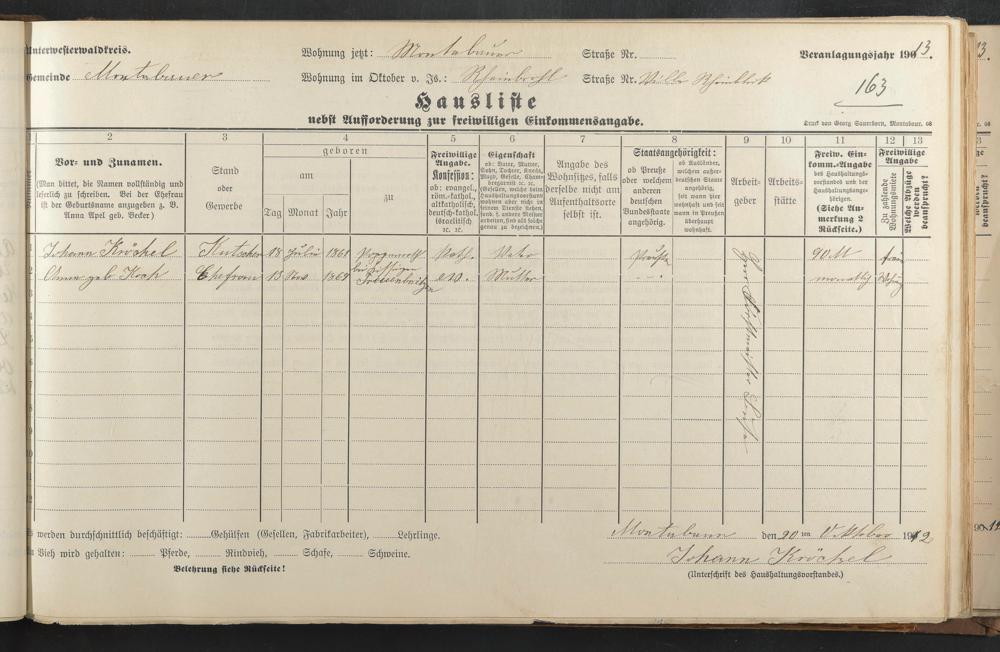 Unterwesterwaldkreis.
Wohnung jetzt: Montabaur Straße Nr.
Veranlagungsjahr 1913.
Gemeinde Montabaur
Wohnung im Oktober v. Js.: Rheinbrohl Straße Nr. Villa
163
Hausliste
nebst Aufforderung zur freiwilligen Einkommensangabe.
Druck von Georg Sauerborn, Montabaur. 68
2 3 4 5 6 7 8 9 10 11 12 13
Vor- und Zunamen.
(Man bittet, die Namen vollständig und
leserlich zu schreiben. Bei der Ehefrau
ist der Geburtsname anzugeben z. B.
Anna Apel geb. Becker)
Stand
oder
Gewerbe
geboren
am
zu
Tag Monat Jahr
Freiwillige
Angabe.
Konfession:
ob: evangel.,
röm.-kathol.,
altkatholisch,
deutsch-kathol.
israelitisch
ec. ec.
Eigenschaft
ob: Vater, Mutter,
Angabe des
Wohnsitzes, falls
derselbe nicht am
Aufenthaltsorte
selbst ist.
Staatsangehörigkeit:
ob Preuße
oder welchem
anderen
deutschen
Bundesstaate
angehörig.
ob Ausländer,
welchem außer-
deutschen Staate
angehörig,
seit wann hier
wohnhaft und seit
wann in Preußen
überhaupt
wohnhaft.
Arbeit-
geber
Arbeits-
stätte
Freiw. Ein-
komm.-Angabe
des Haushaltungs-
vorstandes und der
Haushaltungsange-
hörigen.
(Siehe An-
merkung 2
Rückseite.)
Freiwillige
Angabe
Zu zahlende
Wohnungsmiete
Welche Abzüge
werden
beansprucht?
Johann Kröckel Kutscher 18 Juli 1861 Kath. Vater Preuße 90 M frei
geb. Koch Ehefrau 13 Nov. 1869 eva. Mutter monatlich
werden durchschnittlich beschäftigt: Gehülfen (Gesellen, Fabrikarbeiter), Lehrlinge.
Vieh wird gehalten: Pferde, Rindvieh, Schafe, Schweine.
Belehrung siehe Rückseite!
Montabaur den 20ten Oktober 1912
Johann Kröckel
(Unterschrift des Haushaltungsvorstandes.)